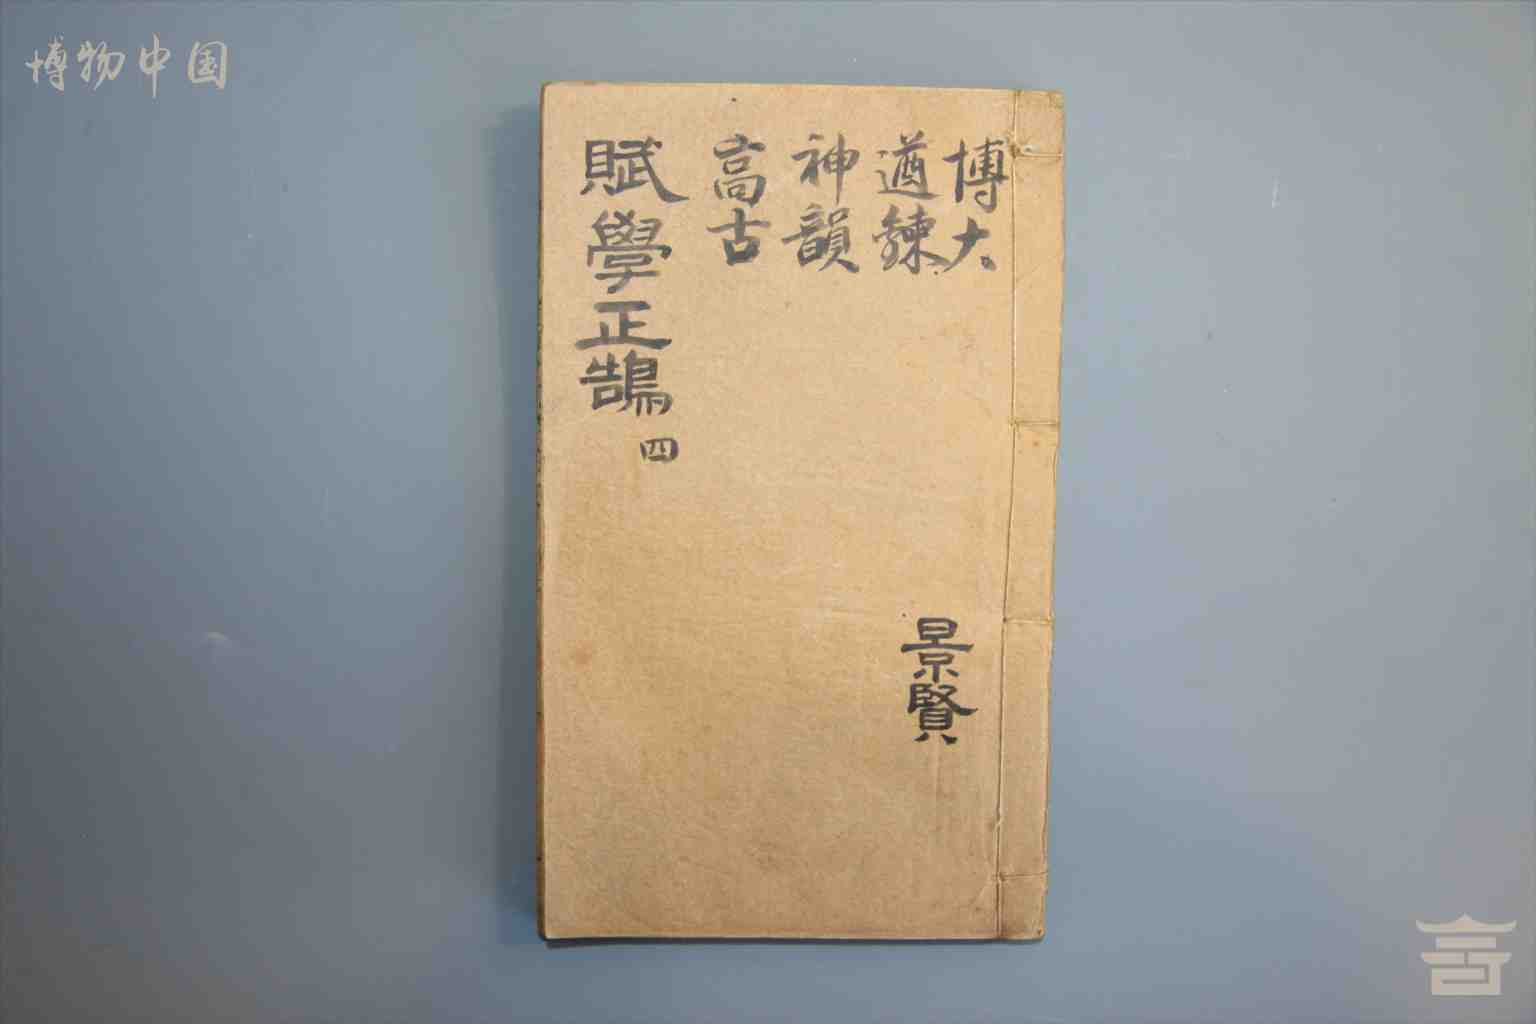 博物中国
博大
遒鍊
神韻
高古
賦學正鵠
四
景賢